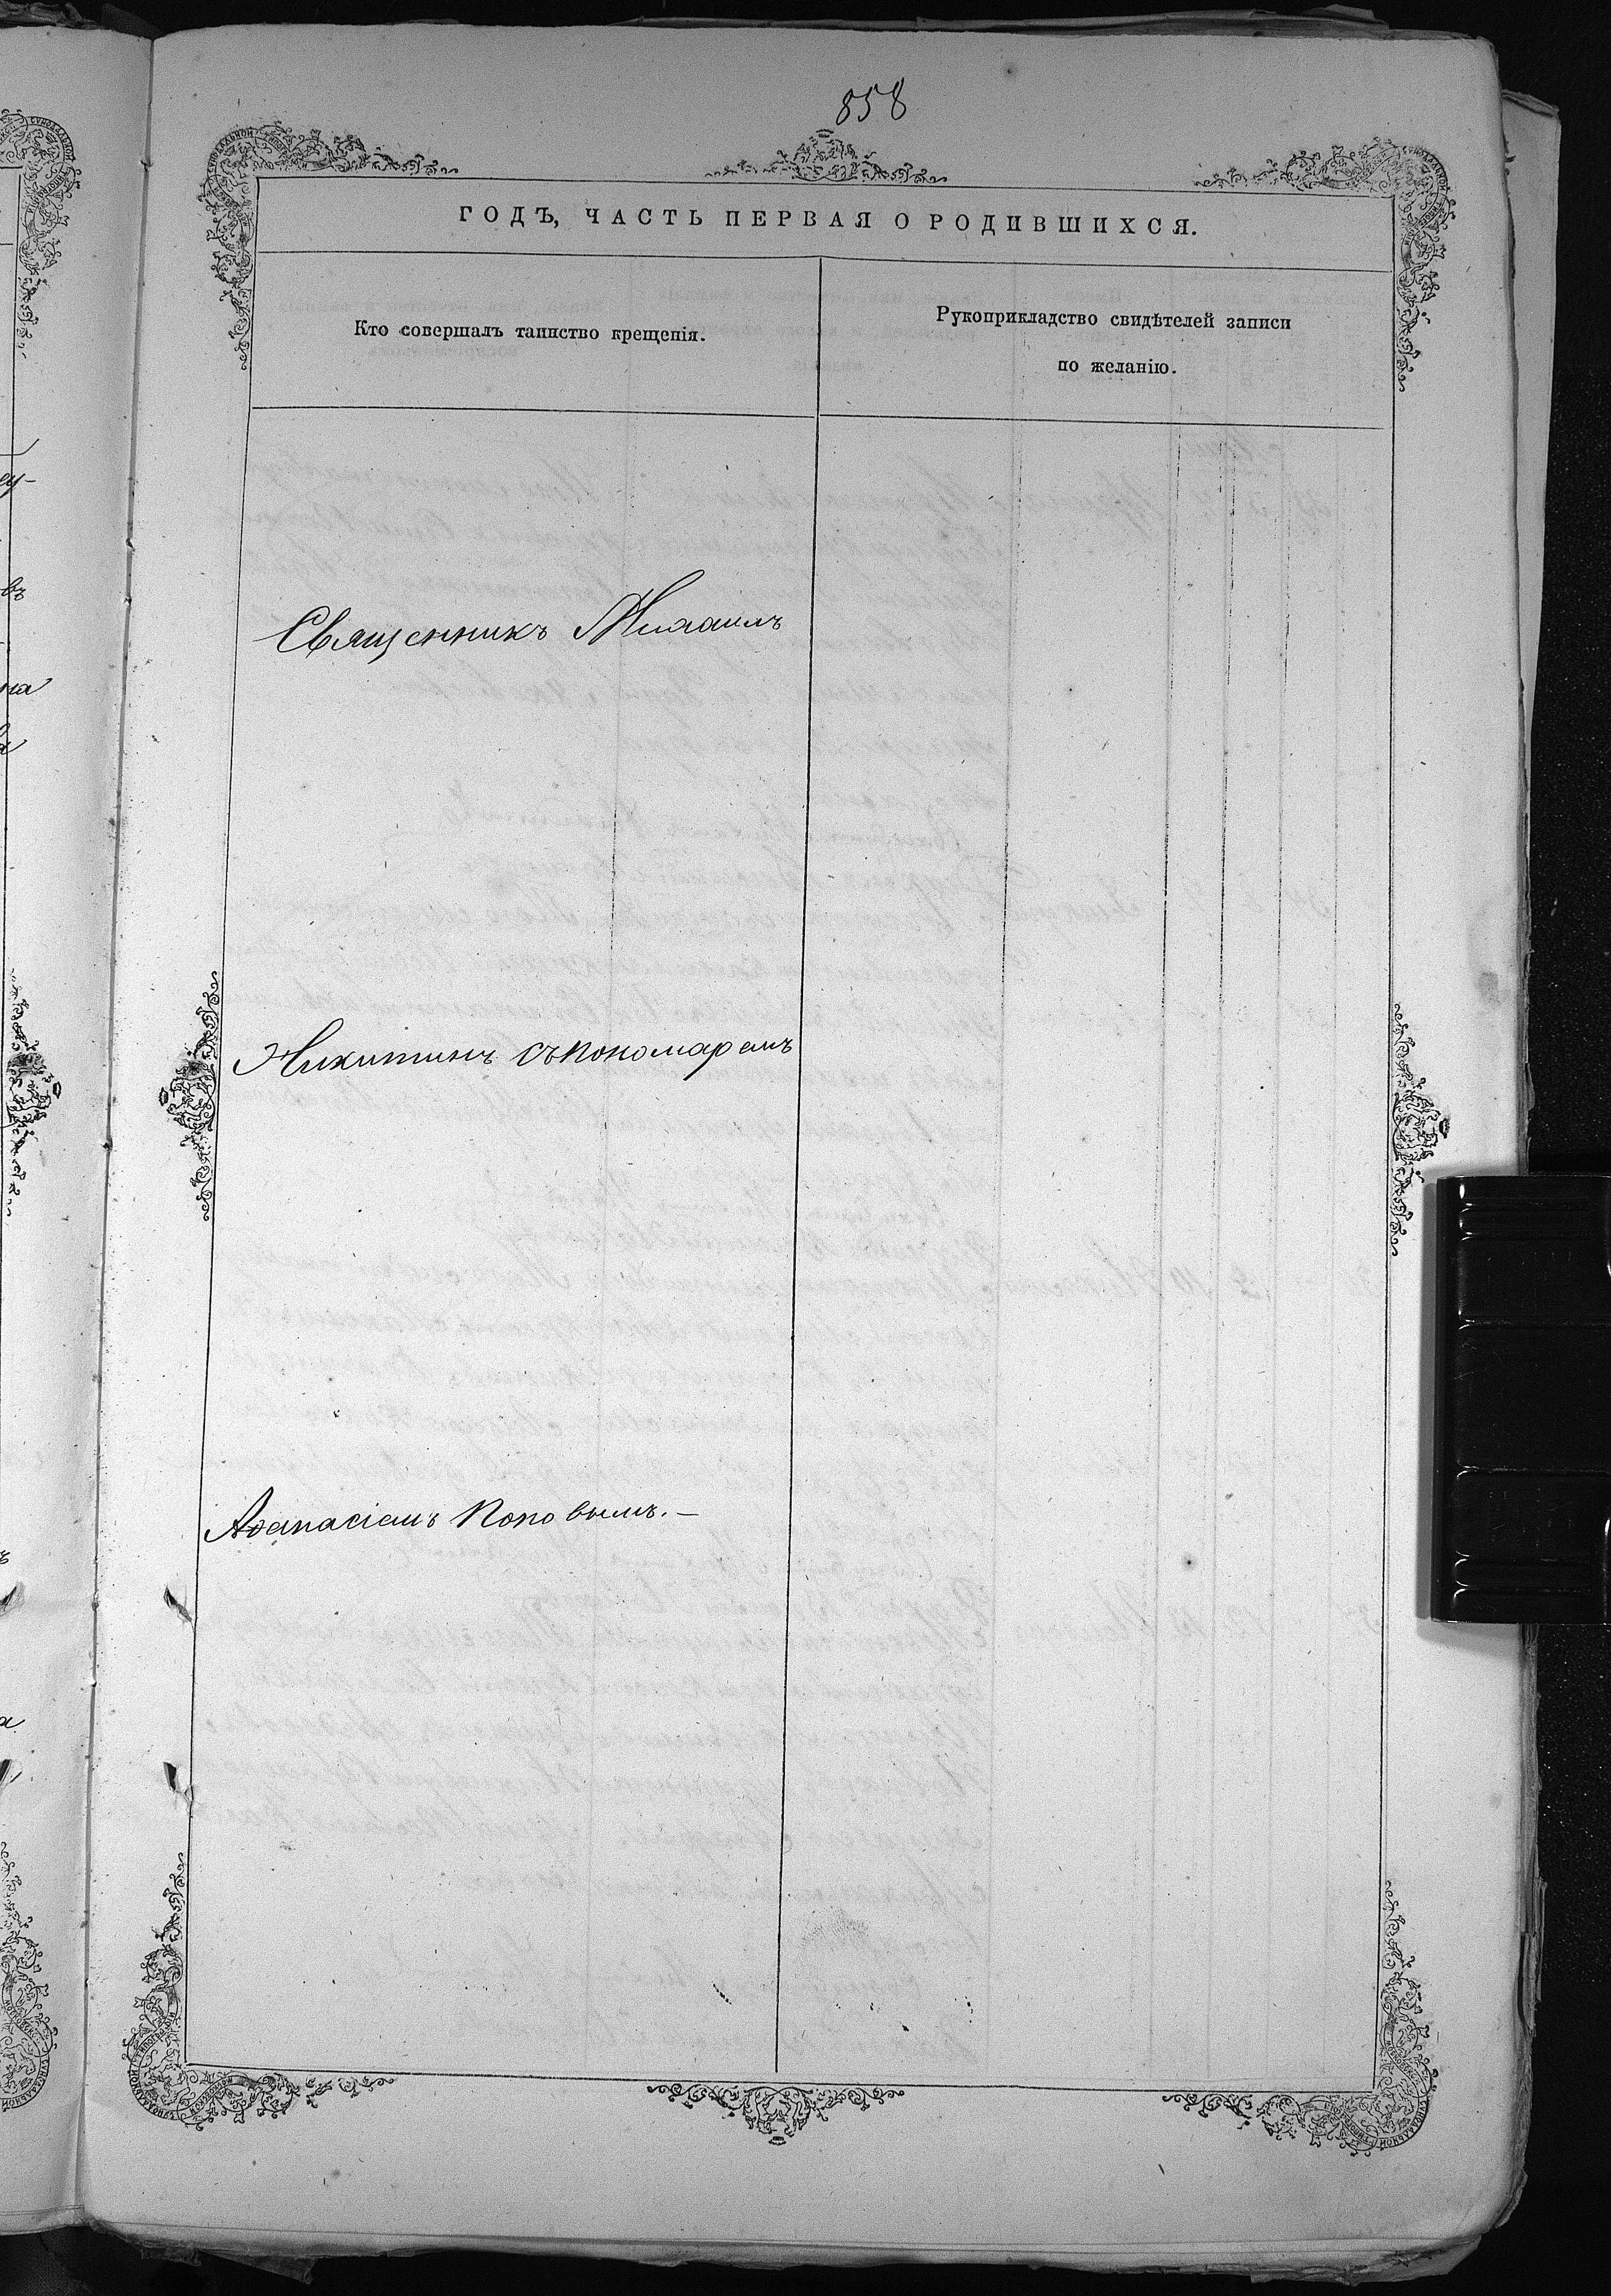 858
ГОДЪ, ЧАСТЬ ПЕРВАЯ О РОДИВШИХСЯ.
Кто совершалъ таинство крещенія.
Рукоприкладство свидѣтелей записи
по желанію.
Священникъ Михаилъ
Никитинъ съ пономаремъ
Аѳанасіемъ Поповымъ.—